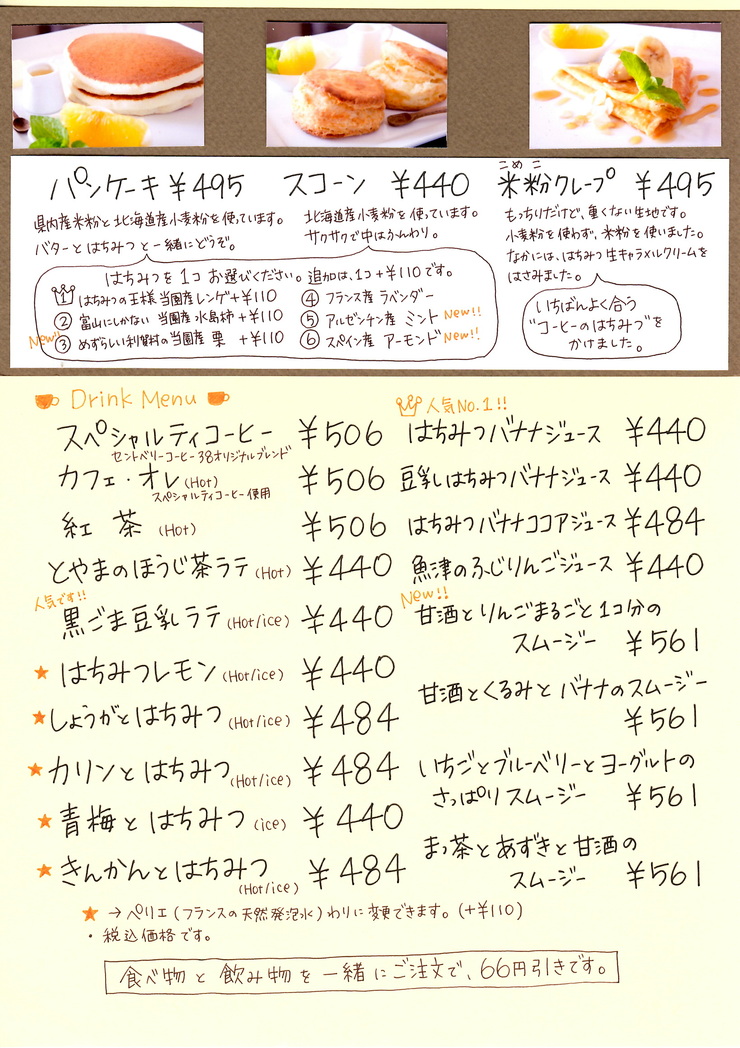 パンケーキ ¥495
県内産米粉と北海道産小麦粉を使っています。
バターとはちみつと一緒にどうぞ。
スコーン ¥440
北海道産小麦粉を使っています。
サクサクで中はふんわり。
こめ こ
米粉クレープ ¥495
もっちりだけど、重くない生地です。
小麦粉を使わず、米粉を使いました。
なかには、はちみつ生キャラメルクリームを
はさみました。
いちばんよく合う
"コーヒーのはちみつ"を
かけました。
はちみつを1コお選びください。追加は、1コ+¥110です。
1 はちみつの王様 当園産レンゲ+¥110
② 富山にしかない 当園産 水島柿+¥110
New!!
③ めずらしい利賀村の当園産 栗 +¥110
④ フランス産 ラベンダー
⑤ アルゼンチン産 ミント New!!
⑥ スペイン産 アーモンド New!!
Drink Menu
スペシャルティコーヒー ¥506
セントベリーコーヒー38オリジナルブレンド
カフェ・オレ(Hot) ¥506
スペシャルティコーヒー使用
紅茶 (Hot) ¥506
とやまのほうじ茶ラテ(Hot) ¥440
人気です!!
黒ごま豆乳ラテ(Hot/ice) ¥440
★ はちみつレモン(Hot/ice) ¥440
★ しょうがとはちみつ(Hot/ice) ¥484
★ カリンとはちみつ(Hot/ice) ¥484
★ 青梅とはちみつ (ice) ¥440
★ きんかんとはちみつ ¥484
(Hot/ice)
人気No.1!!
はちみつバナナジュース ¥440
豆乳はちみつバナナジュース ¥440
はちみつバナナココアジュース ¥484
魚津のふじりんごジュース ¥440
New!!
甘酒とりんごまるごと1コ分の
スムージー ¥561
甘酒とくるみとバナナのスムージー
¥561
いちごとブルーベリーとヨーグルトの
さっぱりスムージー ¥561
まっ茶とあずきと甘酒の
スムージー ¥561
★ →ペリエ(フランスの天然発泡水)わりに変更できます。(+¥110)
・税込価格です。
食べ物と飲み物を一緒にご注文で、66円引きです。